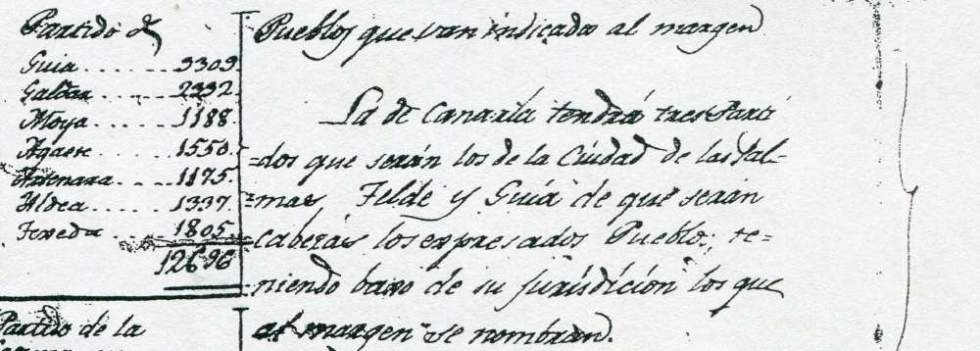 Partido de
Guia ..... 3309
Galdar ..... 2332
Moya ..... 1188
Agaete ..... 1550
Artenara ..... 1175
Aldea ..... 1337
Texeda ..... 1805
12696
Partido de la
Pueblos que van indicados al margen
La de Canaria tendrá tres Parti
-dos que serán los de la Ciudad de las Pal-
=mas Telde y Guía de que serán
caberas los expresados Pueblos, te=
-niendo baxo de su jurisdición los que
al margen se nombran.